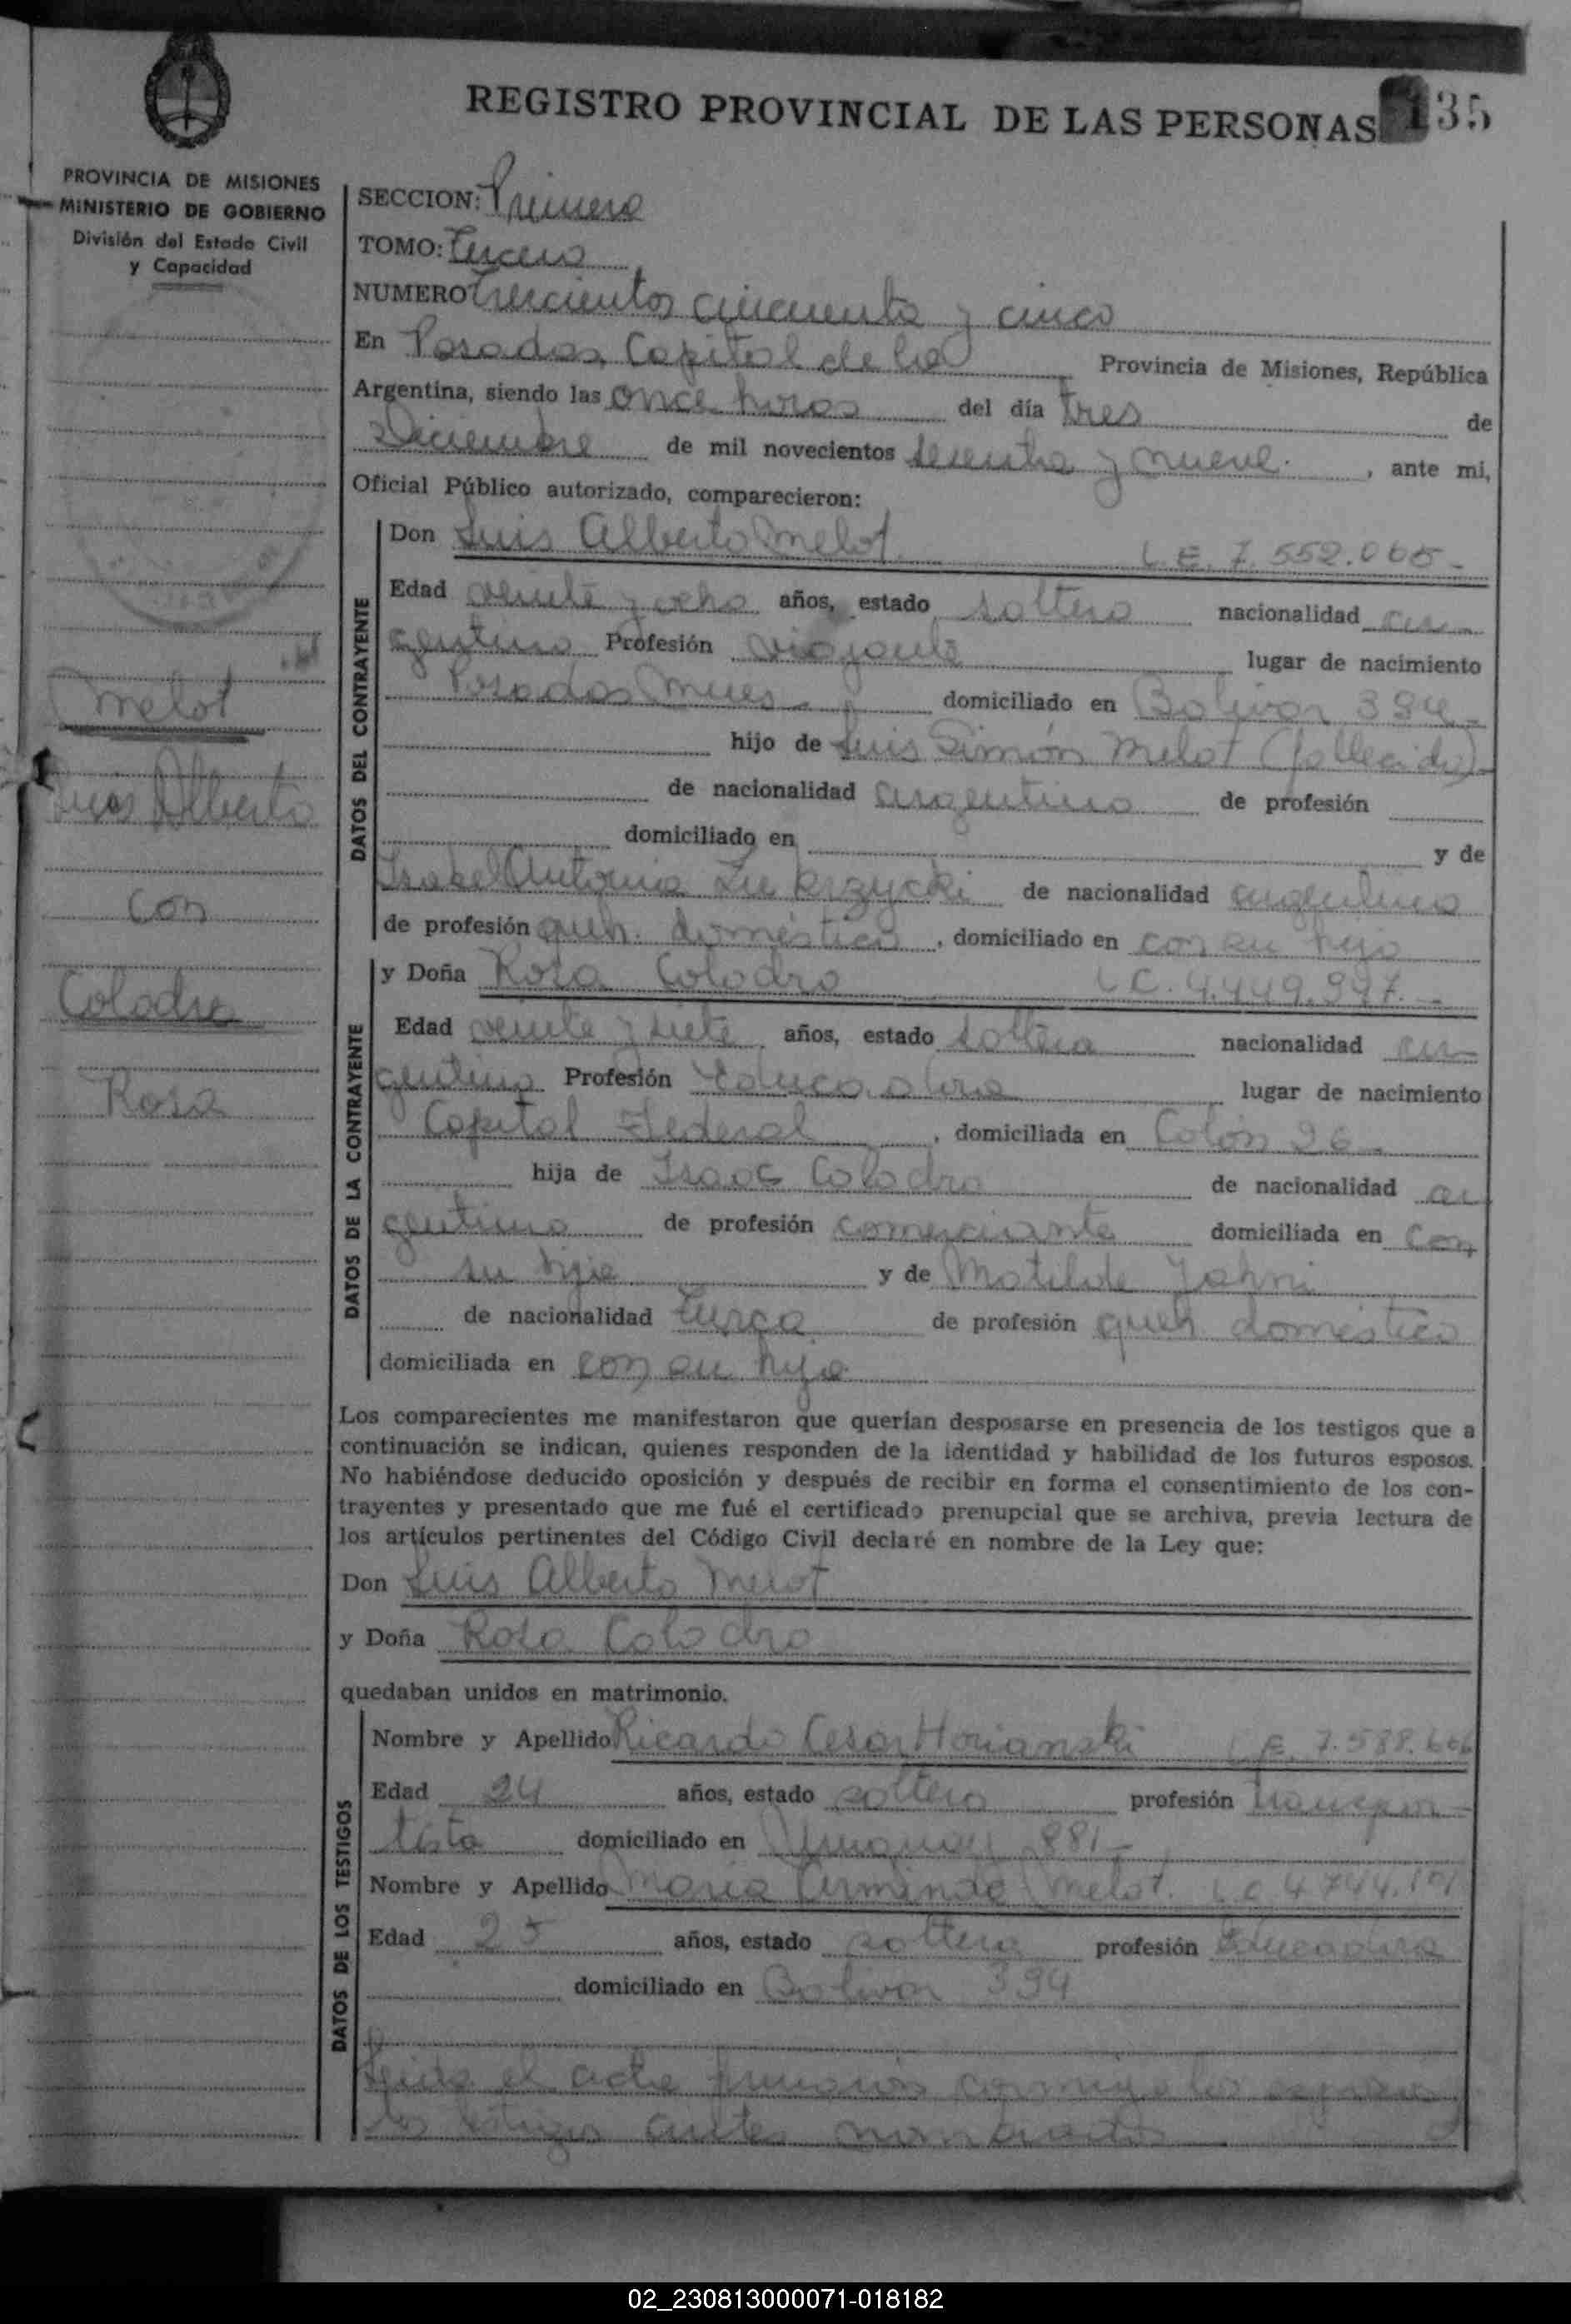 REGISTRO PROVINCIAL DE LAS PERSONAS 135
PROVINCIA DE MISIONES
MINISTERIO DE GOBIERNO
División del Estado Civil
y Capacidad
SECCION: Primera
TOMO: Tercero
NUMERO Trescientos cincuenta y cinco
En Posadas, Capital de la Provincia de Misiones, República
Argentina, siendo las once horas del día tres de
Diciembre de mil novecientos sesenta y nueve. , ante mi,
Oficial Público autorizado, comparecieron:
DATOS DEL CONTRAYENTE
Don Luis Alberto Melot L.E. 7.552.065-
Edad veinte y ocho años, estado soltero nacionalidad ar-
gentino Profesión viajante lugar de nacimiento
Posadas Mnes. domiciliado en Bolivar 394-
hijo de Luis Simón Melot (fallecido)-
de nacionalidad argentino de profesión
domiciliado en y de
Isabel Antonia de nacionalidad argentina
de profesión queh. domésticos, domiciliado en con su hijo
DATOS DE LA CONTRAYENTE
y Doña Rosa Colodro L.C. 4.449.997.-
Edad veinte y siete años, estado soltera nacionalidad ar-
gentina Profesión Educadora lugar de nacimiento
Capital Federal, domiciliada en Colón 26-
hija de Isaac Colodro de nacionalidad ar
gentino de profesión comerciante domiciliada en con
su hija y de Matilde Jahni
de nacionalidad turca de profesión queh domésticos
domiciliada en con su hija
Los comparecientes me manifestaron que querían desposarse en presencia de los testigos que a
continuación se indican, quienes responden de la identidad y habilidad de los futuros esposos.
No habiéndose deducido oposición y después de recibir en forma el consentimiento de los con-
trayentes y presentado que me fué el certificado prenupcial que se archiva, previa lectura de
los artículos pertinentes del Código Civil declaré en nombre de la Ley que:
Don Luis Alberto Melot
y Doña Rosa Colodro
quedaban unidos en matrimonio.
DATOS DE LOS TESTIGOS
Nombre y Apellido Ricardo Cesar Horianski L.E. 7.588.606
Edad 24 años, estado soltero profesión transpor-
tista domiciliado en Uruguay 881-
Nombre y Apellido Maria Arminda Melot. L.C 4.744.101
Edad 25 años, estado soltera profesión Educadora
domiciliado en Bolivar 394
Leida el acta firmaron conmigo los esposos y
los testigos antes nombrados
Melot
Luis Alberto
con
Colodro
Rosa
02_230813000071-018182